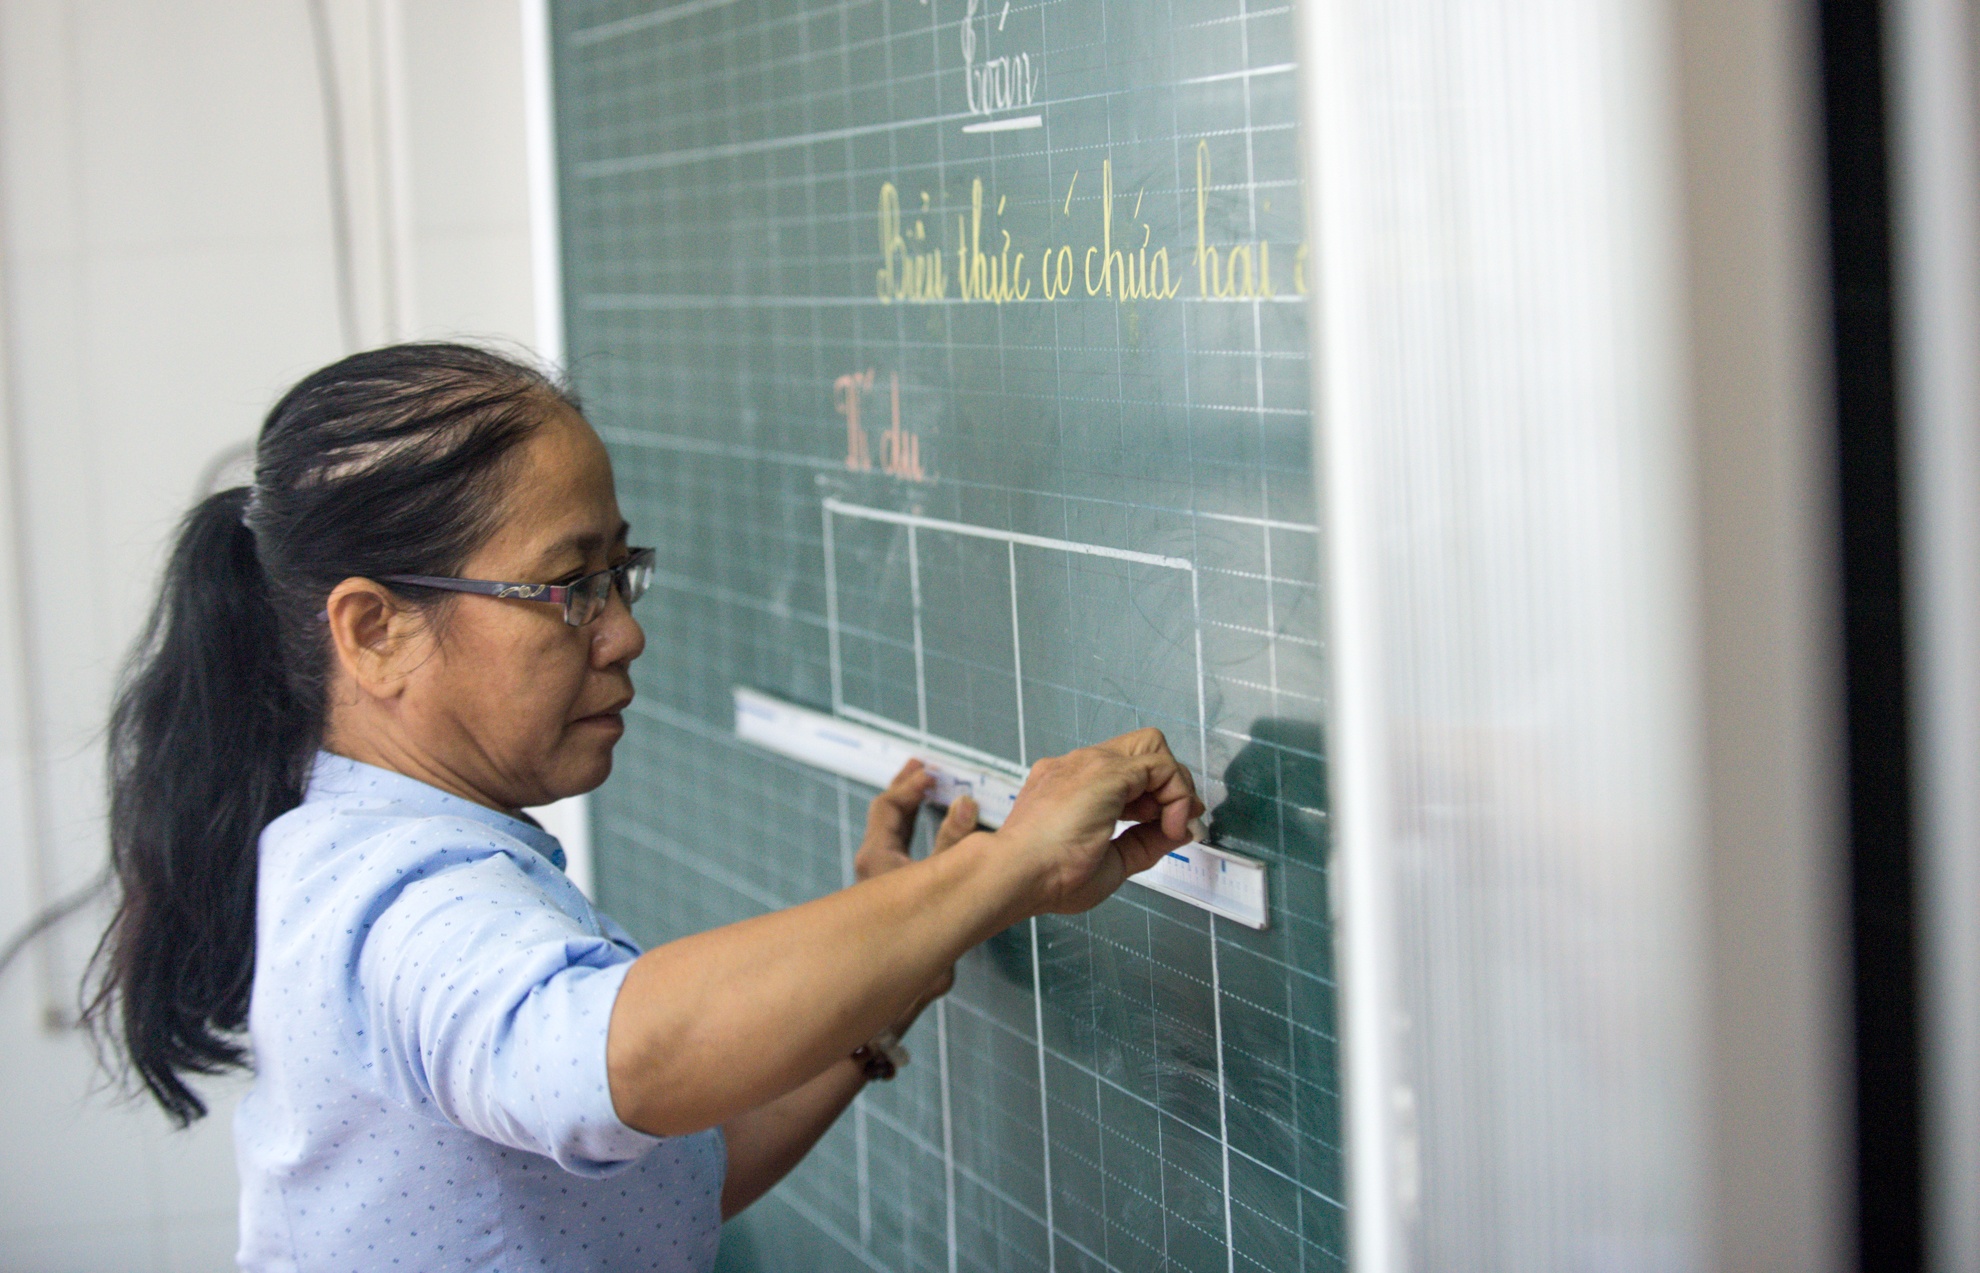 Toán
Biểu thức có chứa hai
Ví dụ